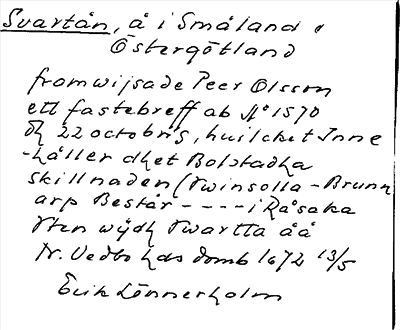 Svartån, å i Småland o
Östergötland
fromwijsade Peer Olsson
ett fastebreff ab Aº 1570
dh 22 octobris, huilchet Inne
-håller dhet Bolstadha
skillnaden (Twinsolla-Brunn
arp Består ---- i Råsaka
Sten wijdh Swartta åå
N. Vedbo hds domb 1672 13/5
Erik Lönnerholm